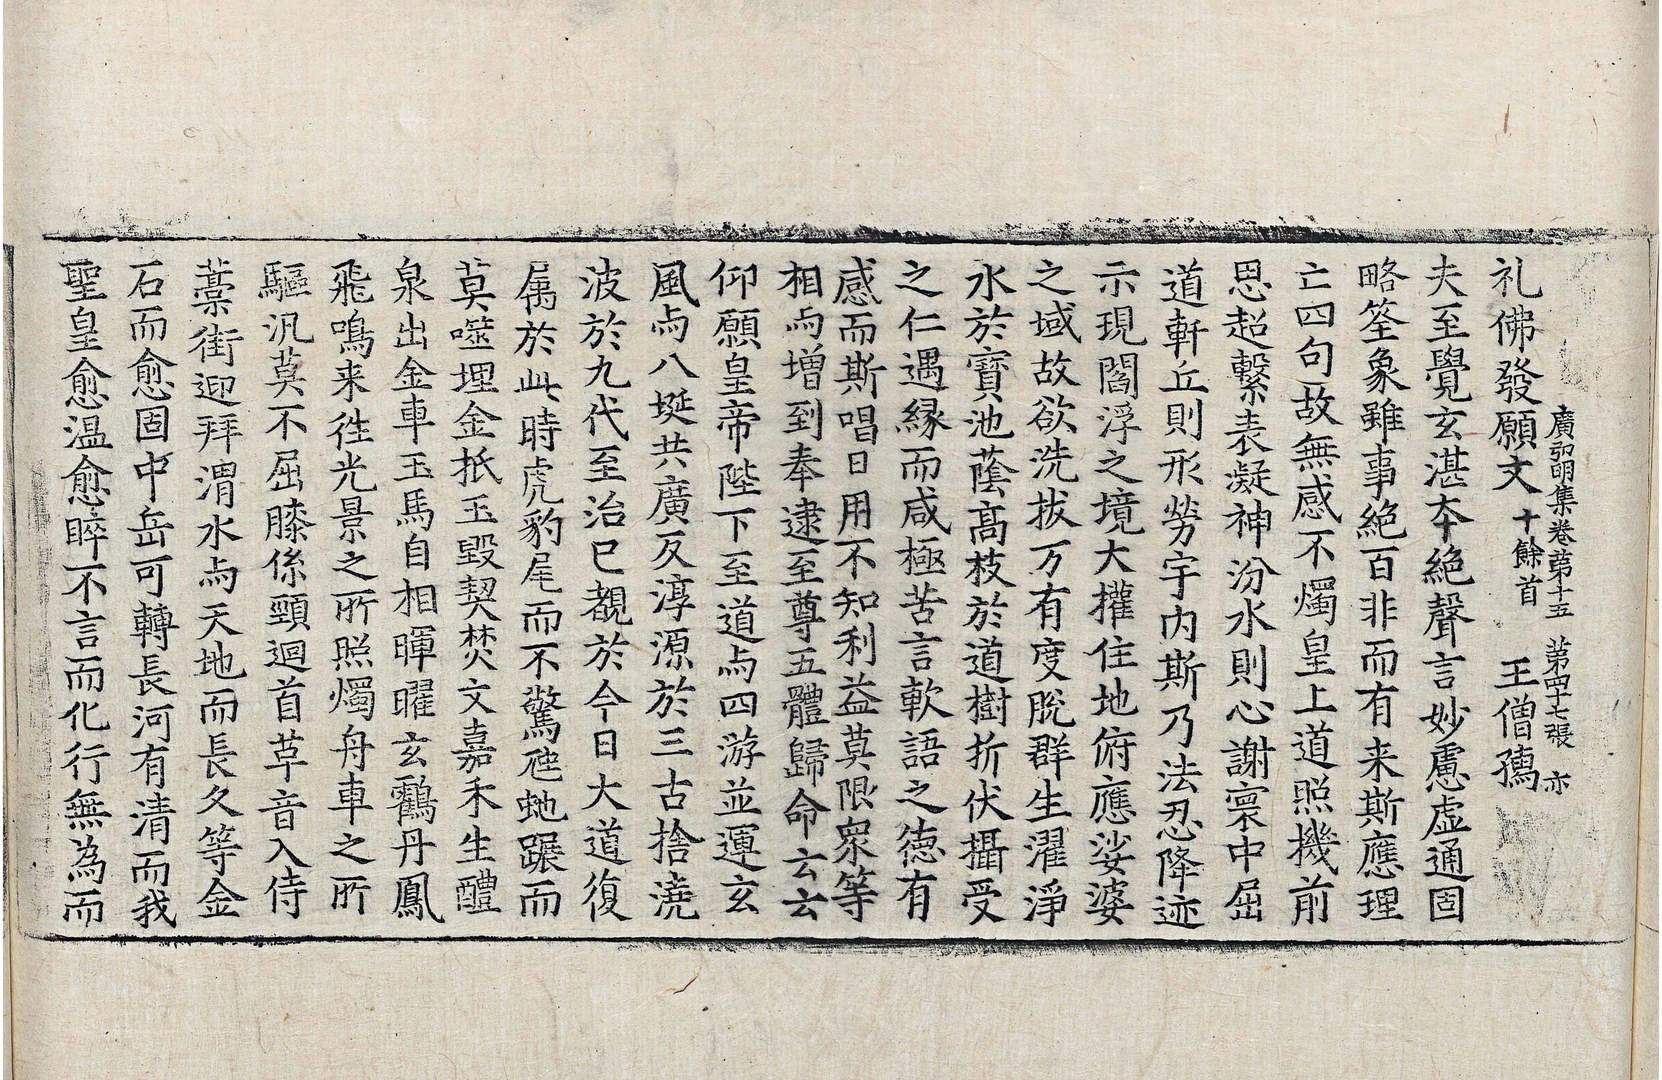 廣弘明集卷第十五　第四十七張　亦
礼佛發願文十餘首　王僧孺
夫至覺玄湛本絶聲言妙慮虚通固
略筌象雖事絶百非而有来斯應理
亡四句故無感不燭皇上道照機前
思超繫表凝神汾水則心謝寰中屈
道軒丘則形勞宇内斯乃法忍降迹
示現閻浮之境大權住地俯應娑婆
之域故欲洗拔万有度脫群生濯淨
水於寶池蔭髙枝於道樹折伏攝受
之仁遇縁而咸極苦言軟語之德有
感而斯唱日用不知利益莫限衆等
相与增到奉逮至尊五體歸命云云
仰願皇帝陛下至道与四游並運玄
風与八埏共廣反淳源於三古捨澆
波於九代至治已覩於今日大道復
属於此時虎豹尾而不驚虺虵蹍而
莫噬埋金抵玉毀契焚文嘉禾生醴
泉出金車玉馬自相暉曜玄鸖丹鳳
飛鳴来往光景之所照燭舟車之所
驅汎莫不屈膝係頸迴首革音入侍
藁街迎拜渭水与天地而長久等金
石而愈固中岳可轉長河有清而我
聖皇愈温愈睟不言而化行無為而